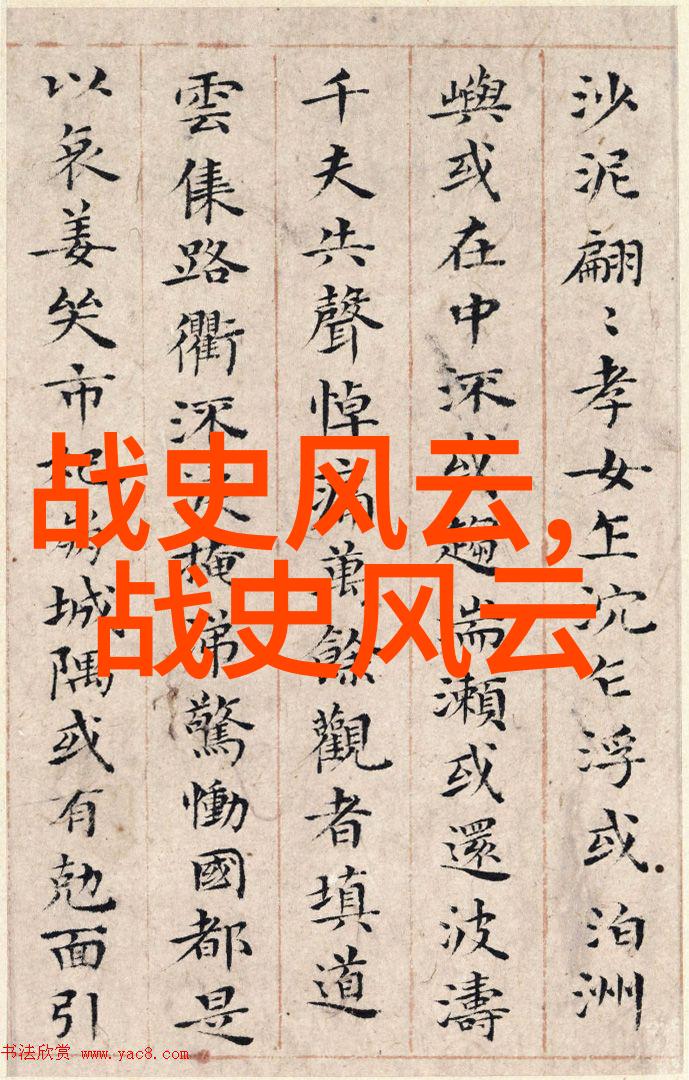 沙泥翩〻孝女乍沉乍浮或泊洲
嶼或在中流或趨湍瀨或還波濤
千夫共聲悼痛萬餘觀者填道
雲集路衢流淚掩涕驚慟國都是
以哀姜哭市杞崩城隅或有剋面引
战史风云,
战史风云
书法欣赏 www.yac8.com